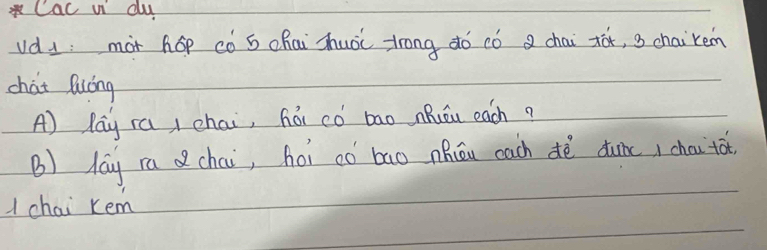 * Các ví dụ
Vd1: một hộp có 5 chai thuốc trong đó có 2 chai tốt, 3 chai kém
chất lượng
A) lấy ra 1 chai, hỏi có bao nhiêu cách ?
B) lấy ra 2 chai, hỏi có bao nhiêu cách để được 1 chai tốt,
1 chai kém